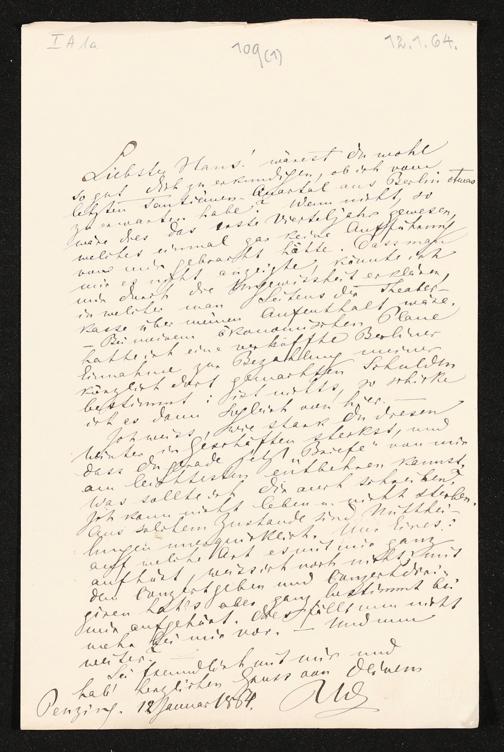 I A 1a
109 (1)
12.1.64.
Liebster Hans! wärest du wohl
so gut dich zu erkundigen, ob ich vom
letzten Tantièmen-Quartal aus Berlin etwas
zu erwarten habe? Wenn nicht, so
wäre dies das erste Vierteljahr gewesen,
welches einmal gar keine Aufführung
von mir gebracht hätte. Dass man
mir es nicht anzeigte, könnte ich
mir durch die Ungewissheit erklären,
in welcher man Seitens der Theater-
kasse über meinen Aufenthalt wäre.
– Bei meinem ökonomischen Plane
hatte ich eine verhoffte Berliner
Einnahme zur Bezahlung meiner
kürzlich dort gemachten Schulden
bestimmt: ist nichts, so schicke
ich es dann sogleich von hier.
Ich weiss, wie stark du diesen
Winter in Geschäften steckst, und
dass du gerade jetzt „Briefe" von mir
am leichtesten entbehren kannst.
Was sollte ich dir auch schreiben?
Ich kann nicht leben u. nicht sterben.
Aus solchem Zustande sind Mitthei-
lungen unerquicklich. Nur Eines:
auf welche Art es mit mir ganz
aufhört, weiss ich noch nicht; mit
dem Concertgeben und Concertdiri-
giren hat's aber ganz bestimmt bei
mir aufgehört. Das fällt nun nicht
mehr bei mir vor. – Und nun
weiter?
Sei freundlich mit mir und
hab' herzlichen Gruss von Deinem
Penzing. 12 Januar 1864. RW